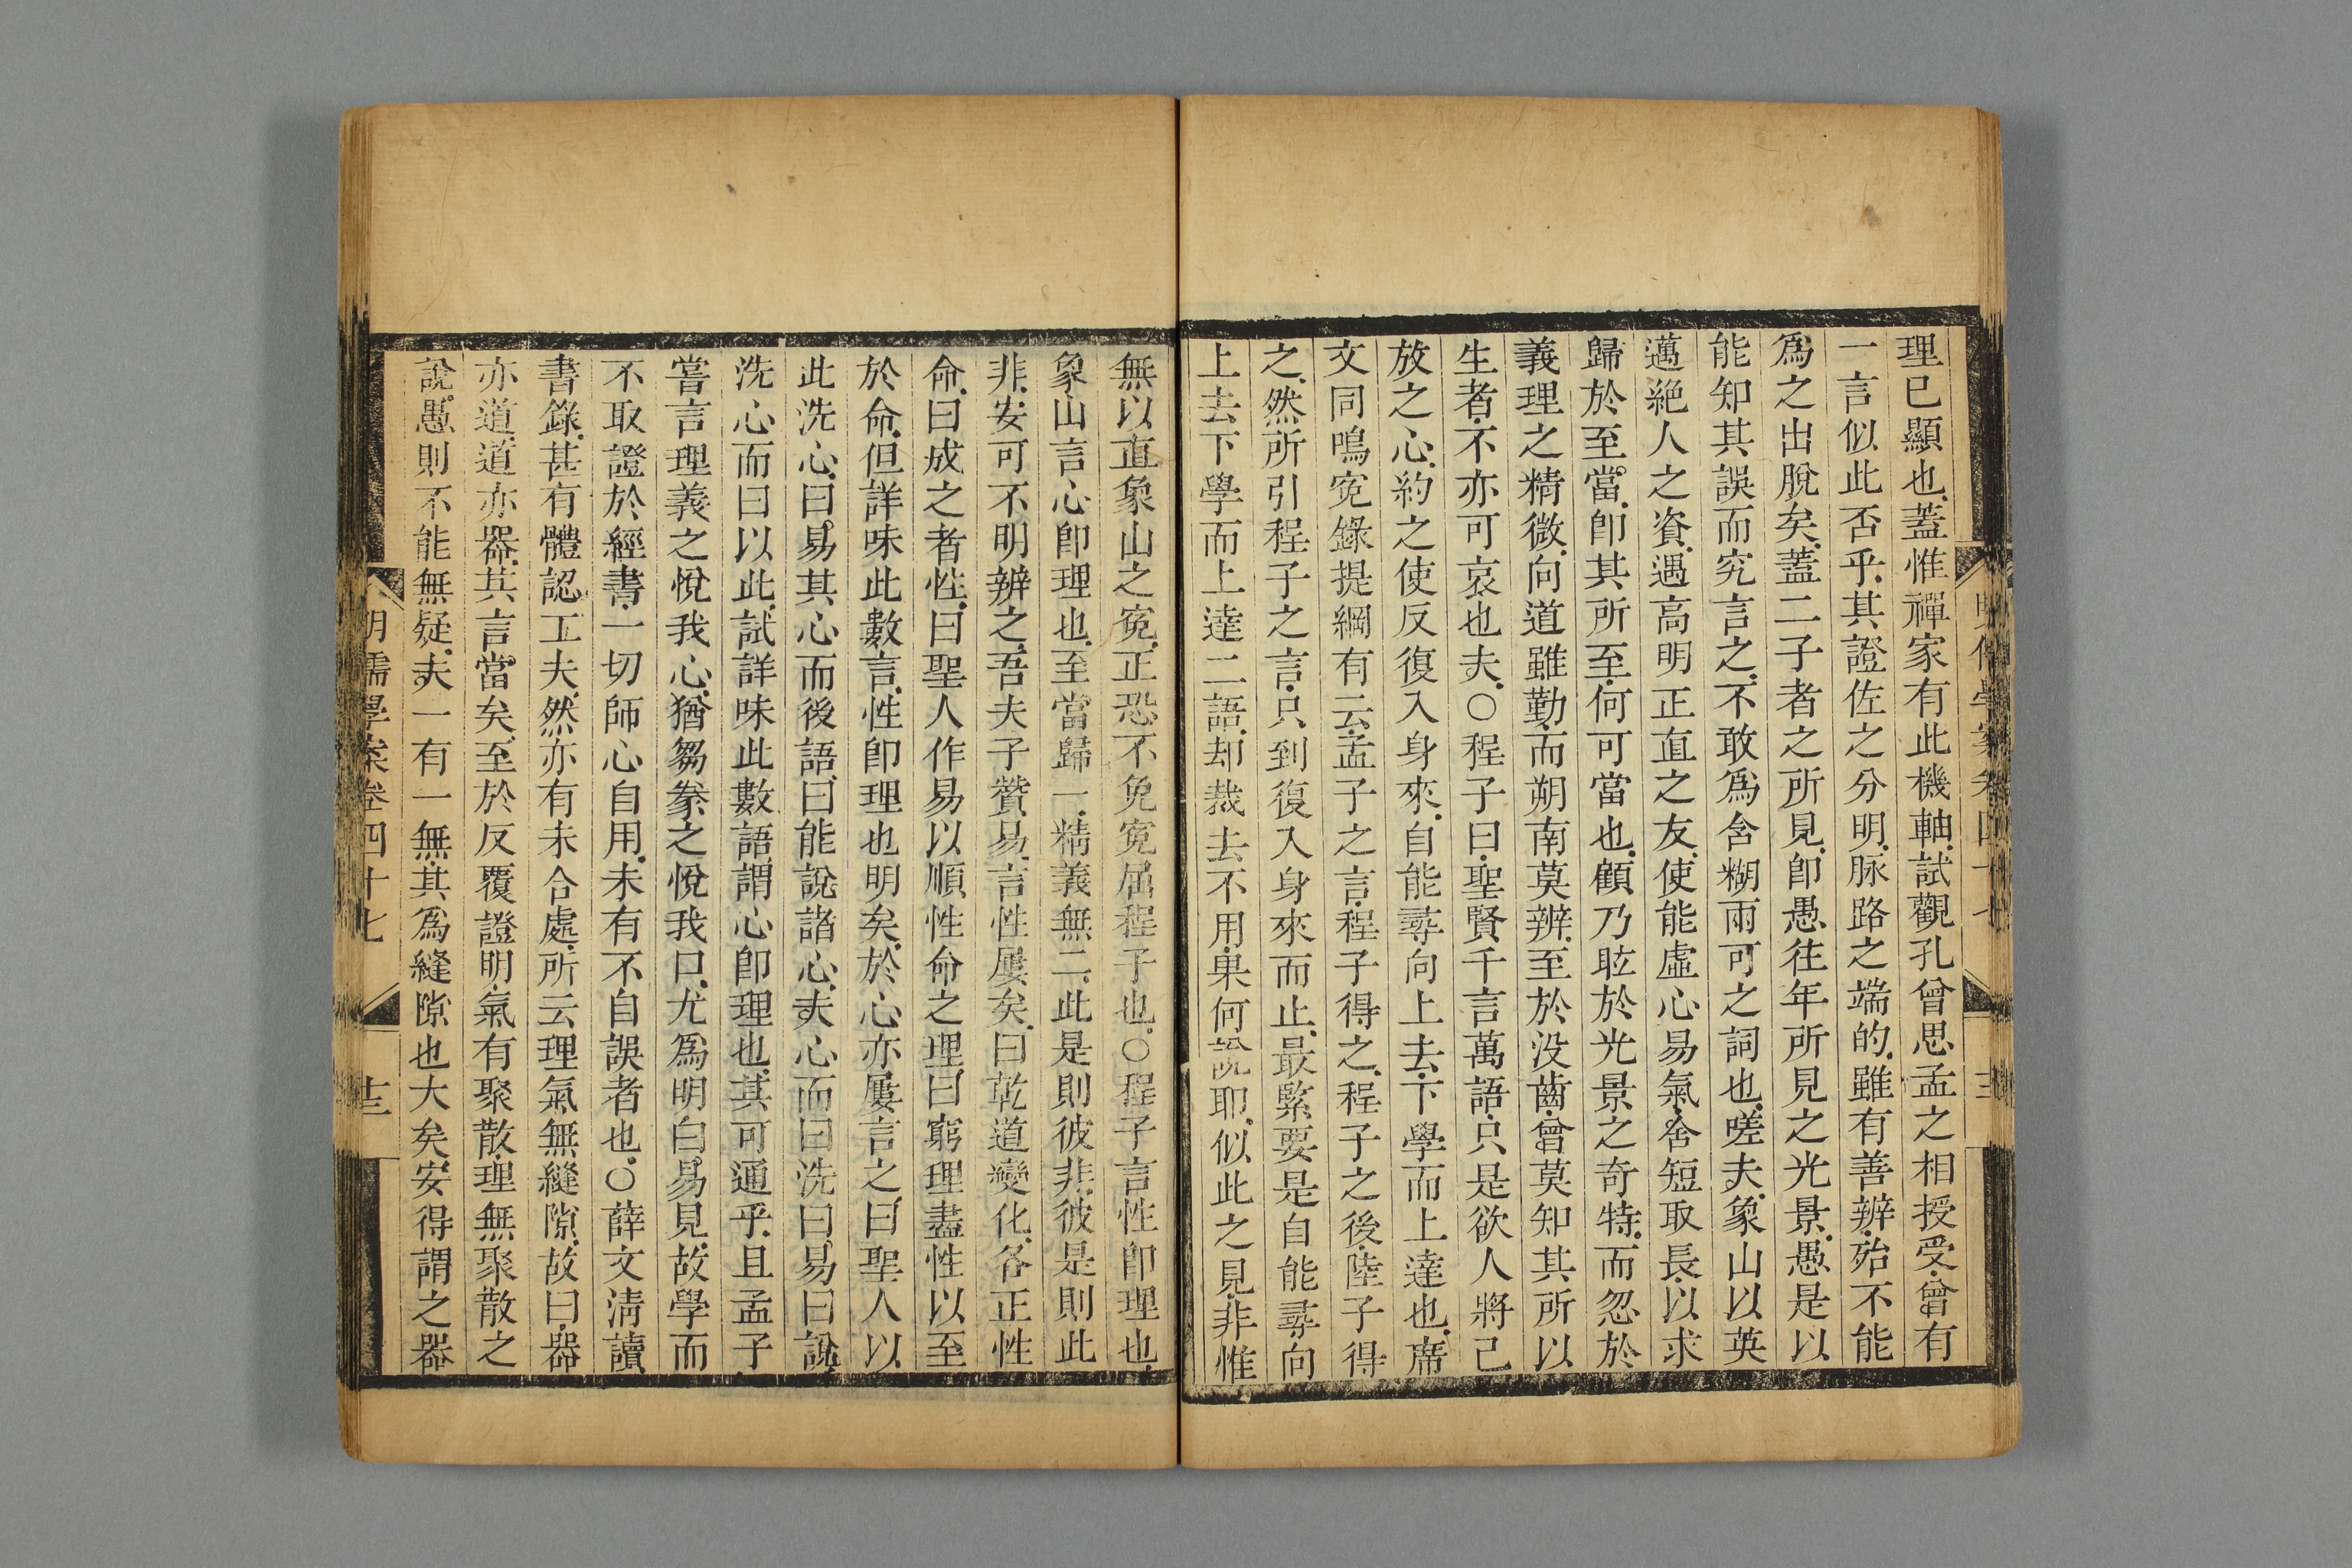 理已顯也蓋惟禪家有此機軸試觀孔曾思孟之相授受曾有
一言似此否乎其證佐之分明脉路之端的雖有善辨殆不能
爲之出脫矣蓋二子者之所見卽愚往年所見之光景愚是以
能知其誤而究言之不敢爲含糊兩可之詞也嗟夫象山以英
邁絕人之資遇高明正直之友使能虛心易氣舍短取長以求
歸於至當卽其所至何可當也顧乃眩於光景之奇特而忽於
義理之精微向道雖勤而朔南莫辨至於没齒曾莫知其所以
生者不亦可哀也夫○程子曰聖賢千言萬語只是欲人將己
放之心約之使反復入身來自能尋向上去下學而上達也席
文同鳴寃錄提綱有云孟子之言程子得之程子之後陸子得
之然所引程子之言只到復入身來而止最緊要是自能尋向
上去下學而上達二語却裁去不用果何說耶似此之見非惟
無以直象山之寃正恐不免寃屈程子也○程子言性卽理也
象山言心卽理也至當歸一精義無二此是則彼非彼是則此
非安可不明辨之吾夫子贊易言性屢矣曰乾道變化各正性
命曰成之者性曰聖人作易以順性命之理曰窮理盡性以至
於命但詳味此數言性卽理也明矣於心亦屢言之曰聖人以
此洗心曰易其心而後語曰能說諸心夫心而曰洗曰易曰說
洗心而曰以此試詳味此數語謂心卽理也其可通乎且孟子
嘗言理義之悅我心猶芻豢之悅我口尤爲明白易見故學而
不取證於經書一切師心自用未有不自誤者也○薛文淸讀
書錄甚有體認工夫然亦有未合處所云理氣無縫隙故曰器
亦道道亦器其言當矣至於反覆證明氣有聚散理無聚散之
說愚則不能無疑夫一有一無其爲縫隙也大矣安得謂之器
明儒學案卷四十七